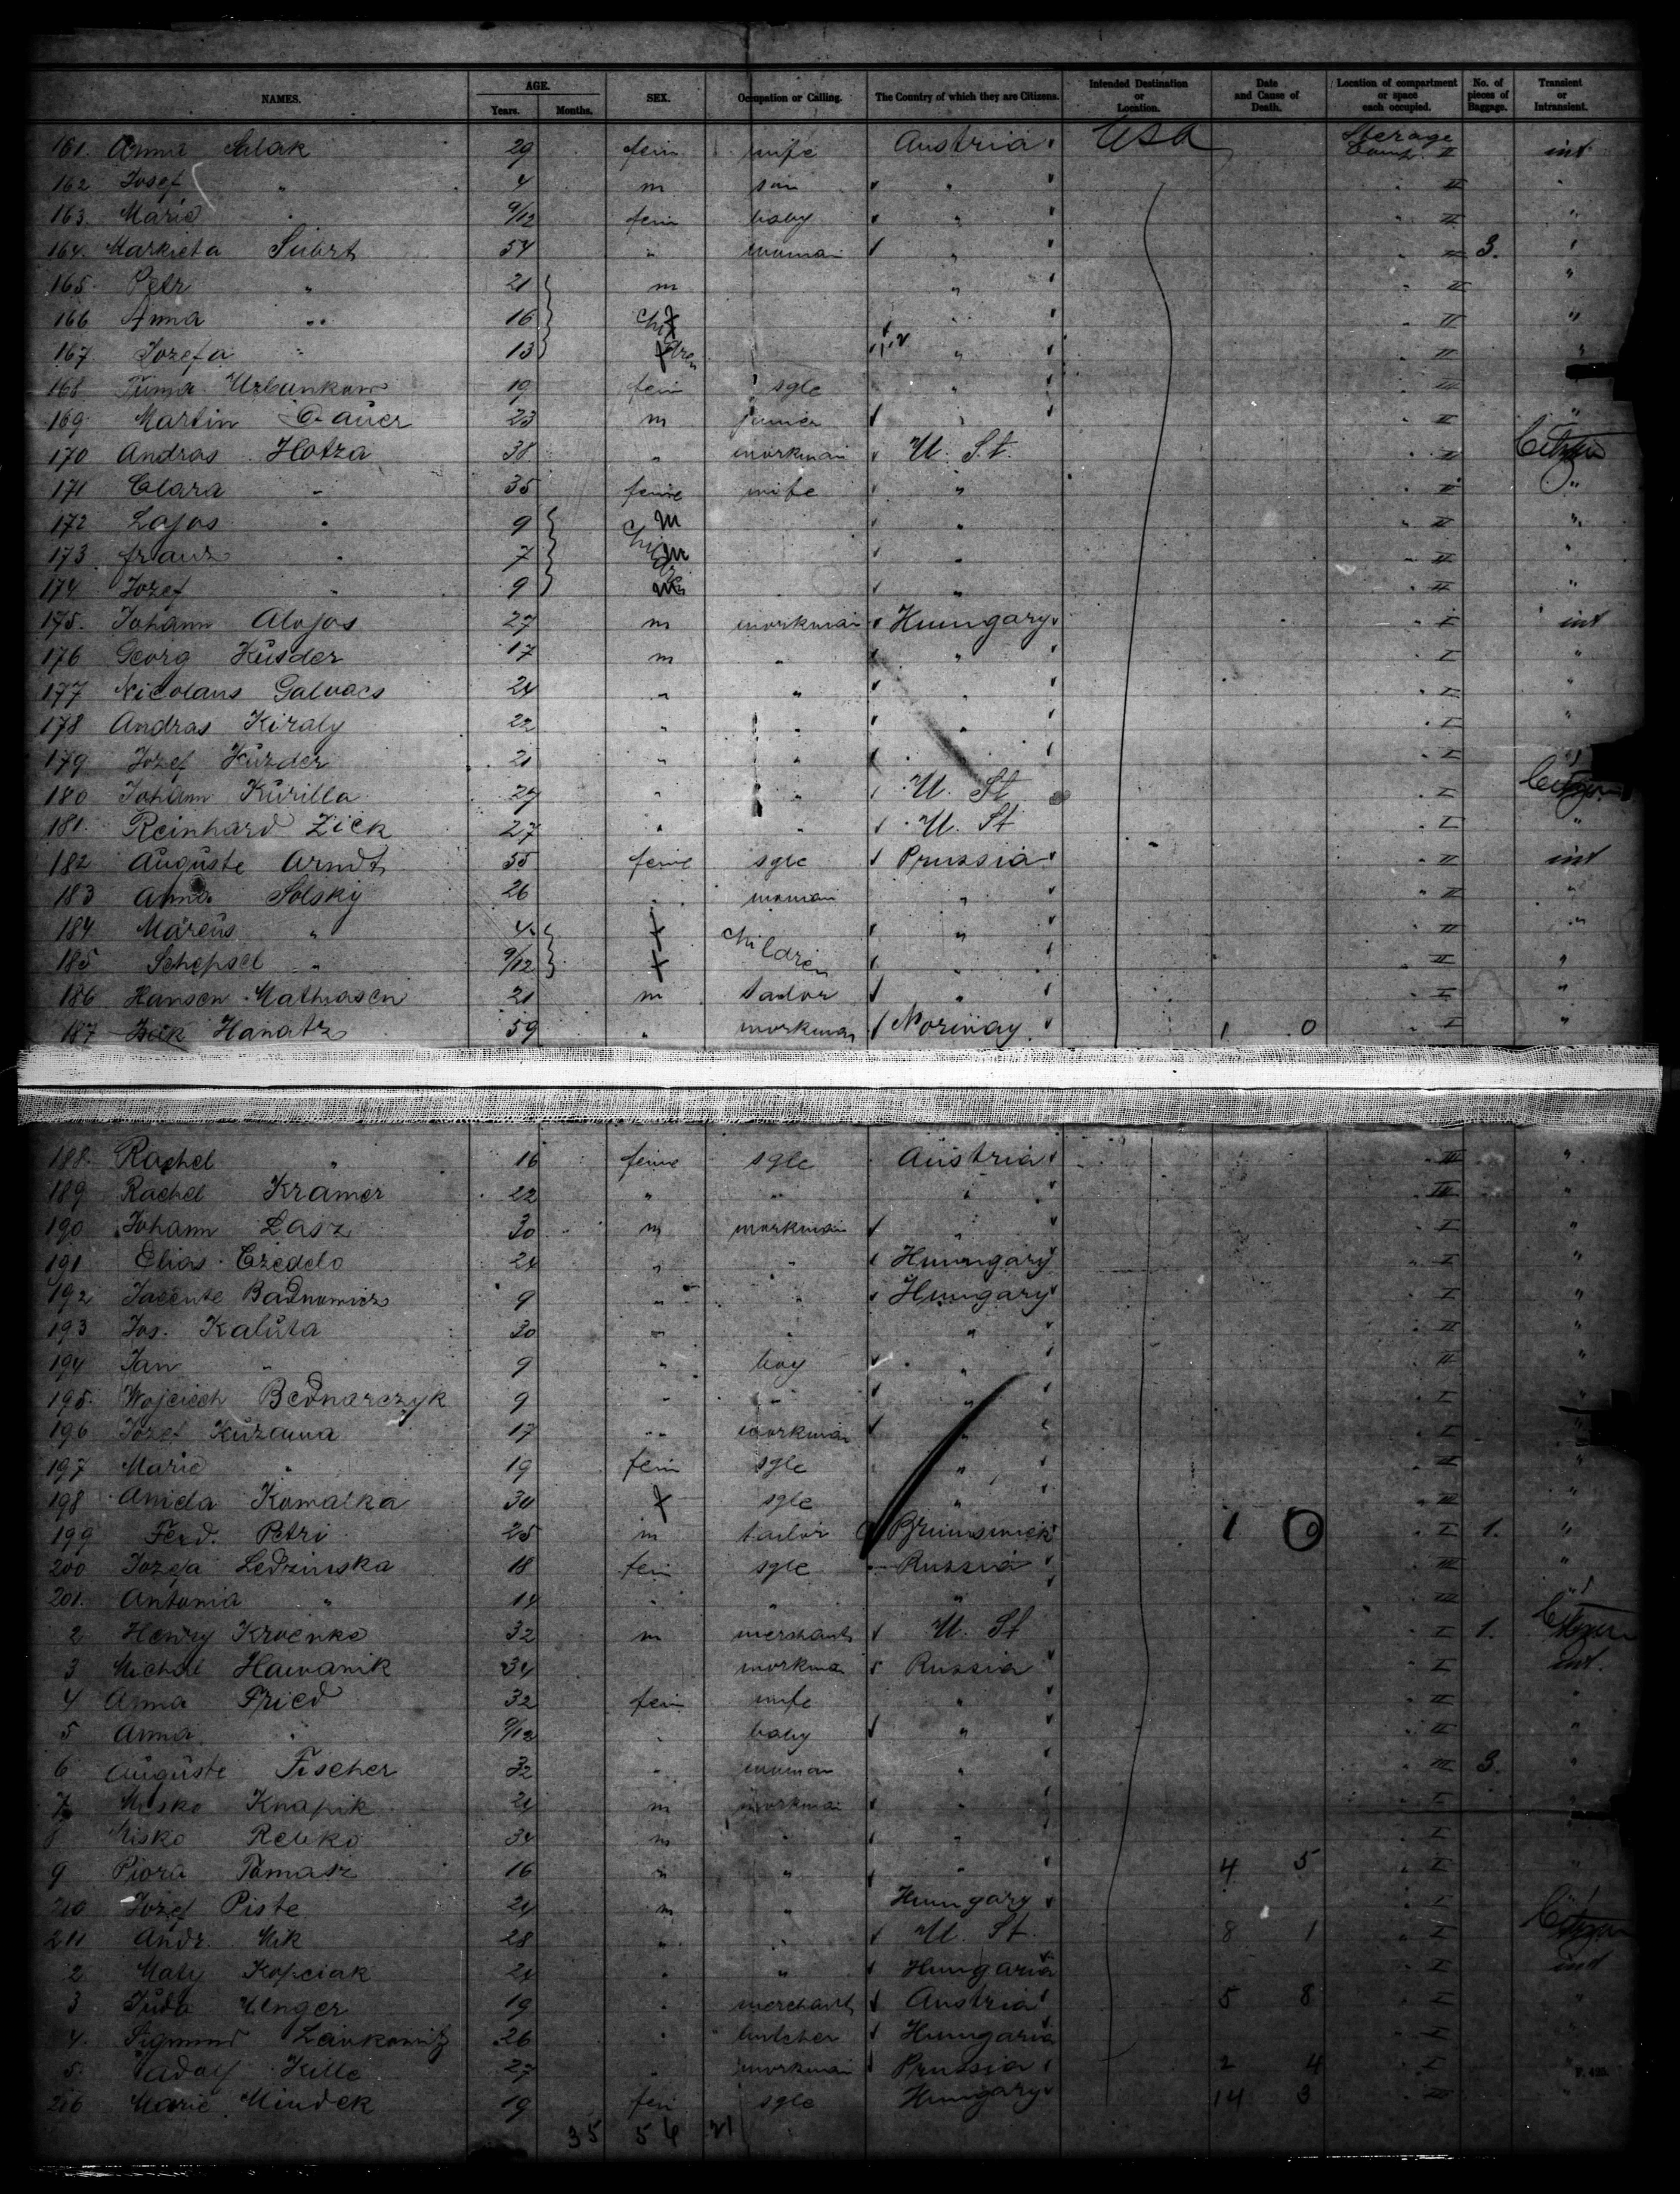 NAMES. AGE. Years. Months. SEX. Occupation or Calling. The Country of which they are Citizens. Intended Destination or Location. Date and Cause of Death. Location of compartment or space each occupied. No. of pieces of Baggage. Transient or Intransient.
161. Anna 29 fem wife Austria USA Sterage Comp. II int
162 Josef " 4 m son " " II "
163. Marie " 9/12 fem baby " II "
164. Markieta Subrt 54 " woman " II 3. "
165. Petr " 21 m " II "
166 Anna " 16 children f " II "
167. Jozefa " 13 f " II "
168 19 fem sgle " III
169. Martin 23 m " II "
170 Andras Hotza 38 " workman U. St. II Citizen
171 Clara " 35 feme wife " II "
172 Lajos " 9 children m " II "
173. franz " 7 m " II "
174 Jozef " 9 m " II "
175. Johann Alojos 27 m workman Hungary I int
176 Georg Kusder 17 m " " I "
177 Nicolaus Galvacs 24 " " " I "
178 Andras Kiraly 22 " " " I "
179 Jozef Kuzder 21 " " " I "
180 Johann Kurilla 27 " " U. St I Citizen
181. Reinhard Zick 27 " " U. St I "
182 Auguste Arndt 55 feme sgle Prussia II int
183 Anna Solsky 26 " woman " II "
184 Marcus " 4 f children " II "
185 Schepsel " 9/12 f " II "
186 Hansen Mathiasen 21 m " I "
187 Hanatz 59 " workman Norway 1 0 I "
188. Rachel " 16 feme sgle Austria III "
189 Rachel Kramer 22 " " " III "
190 Johann Lasz 30 m workman " I "
191 Elias Czedelo 24 " " Hungary I "
192 9 " " Hungary I "
193 Jos. Kaluta 30 " " " II "
194 Jan " 9 " boy " II "
195. Wojciech Bednarczyk 9 " " " I "
196 Jozef Kuzama 17 " workman " I "
197 Marie " 19 fem sgle " II "
198 Kowalka 30 f sgle " III "
199 Ferd. Petri 25 m tailor Brunswick 1 0 I 1. "
200 Jozefa Ledzinska 18 fem sgle Russia III "
201. Antonia " 14 " " " III "
2 Henry Kroenke 32 m merchant U. St I 1. Citizen
3 Michal Hawanik 34 workman Russia I int.
4 Anna Fried 32 fem wife " II "
5 Anna " 9/12 " baby " II "
6 Auguste Fischer 32 " woman " III 3. "
7 Misko Knapik 24 m workman " I "
8 Misko 34 m " " I
9 Piora Tomasz 16 " " " 4 5 I "
210 Jozef Piste 24 m " Hungary I "
211 Andr. Mik 28 " " U. St. 8 1 I Citizen
2 Maty Kopciak 24 " " Hungaria I int
3 Juda Unger 19 " merchant Austria 5 8 I "
4. Sigmund 26 " butcher Hungaria I "
5. Adolf Kille 27 " workman Prussia 2 4 I "
216 Marie Mindek 19 fem sgle Hungary 14 3 III "
35 54 21